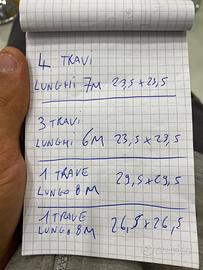 4 TRAVI
LUNGHI 7M 23,5 x 23,5
3 TRAVI
LUNGHI 6M 23,5 x 23,5
1 TRAVE 29,5 x 29,5
LUNGO 8M
1 TRAVE 26,5 x 26,5
LUNGO 8M